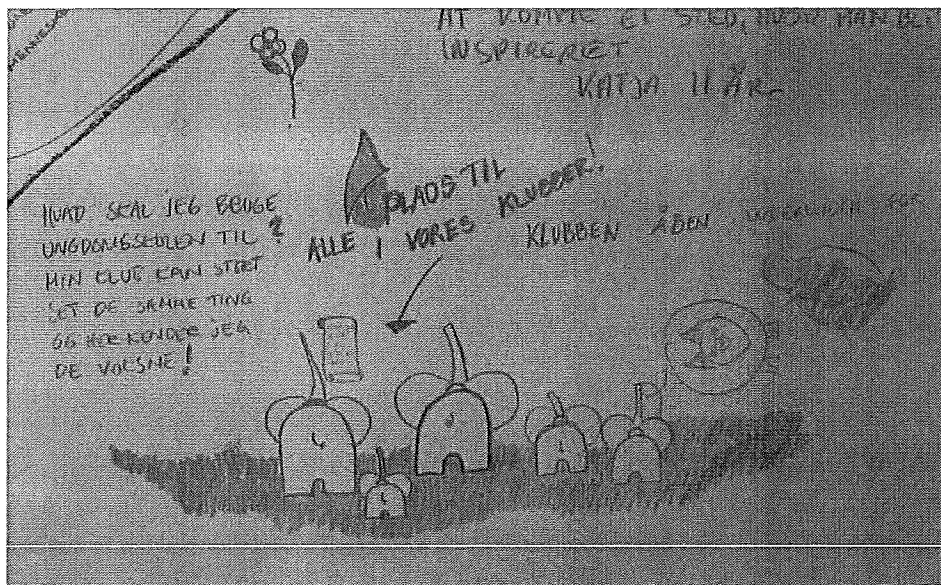 AT KOMME ET STED, HVOR MAN BLI
INSPIRERET
KATJA 11 ÅR
HVAD SKAL JEG BRUGE
UNGDOMSSKOLEN TIL?
MIN CLUB KAN STORT
SET DE SAMME TING
OG HER KENDER JEG
DE VOKSNE!
PLADS TIL
ALLE I VORES KLUBBER!
KLUBBEN ÅBEN FOR